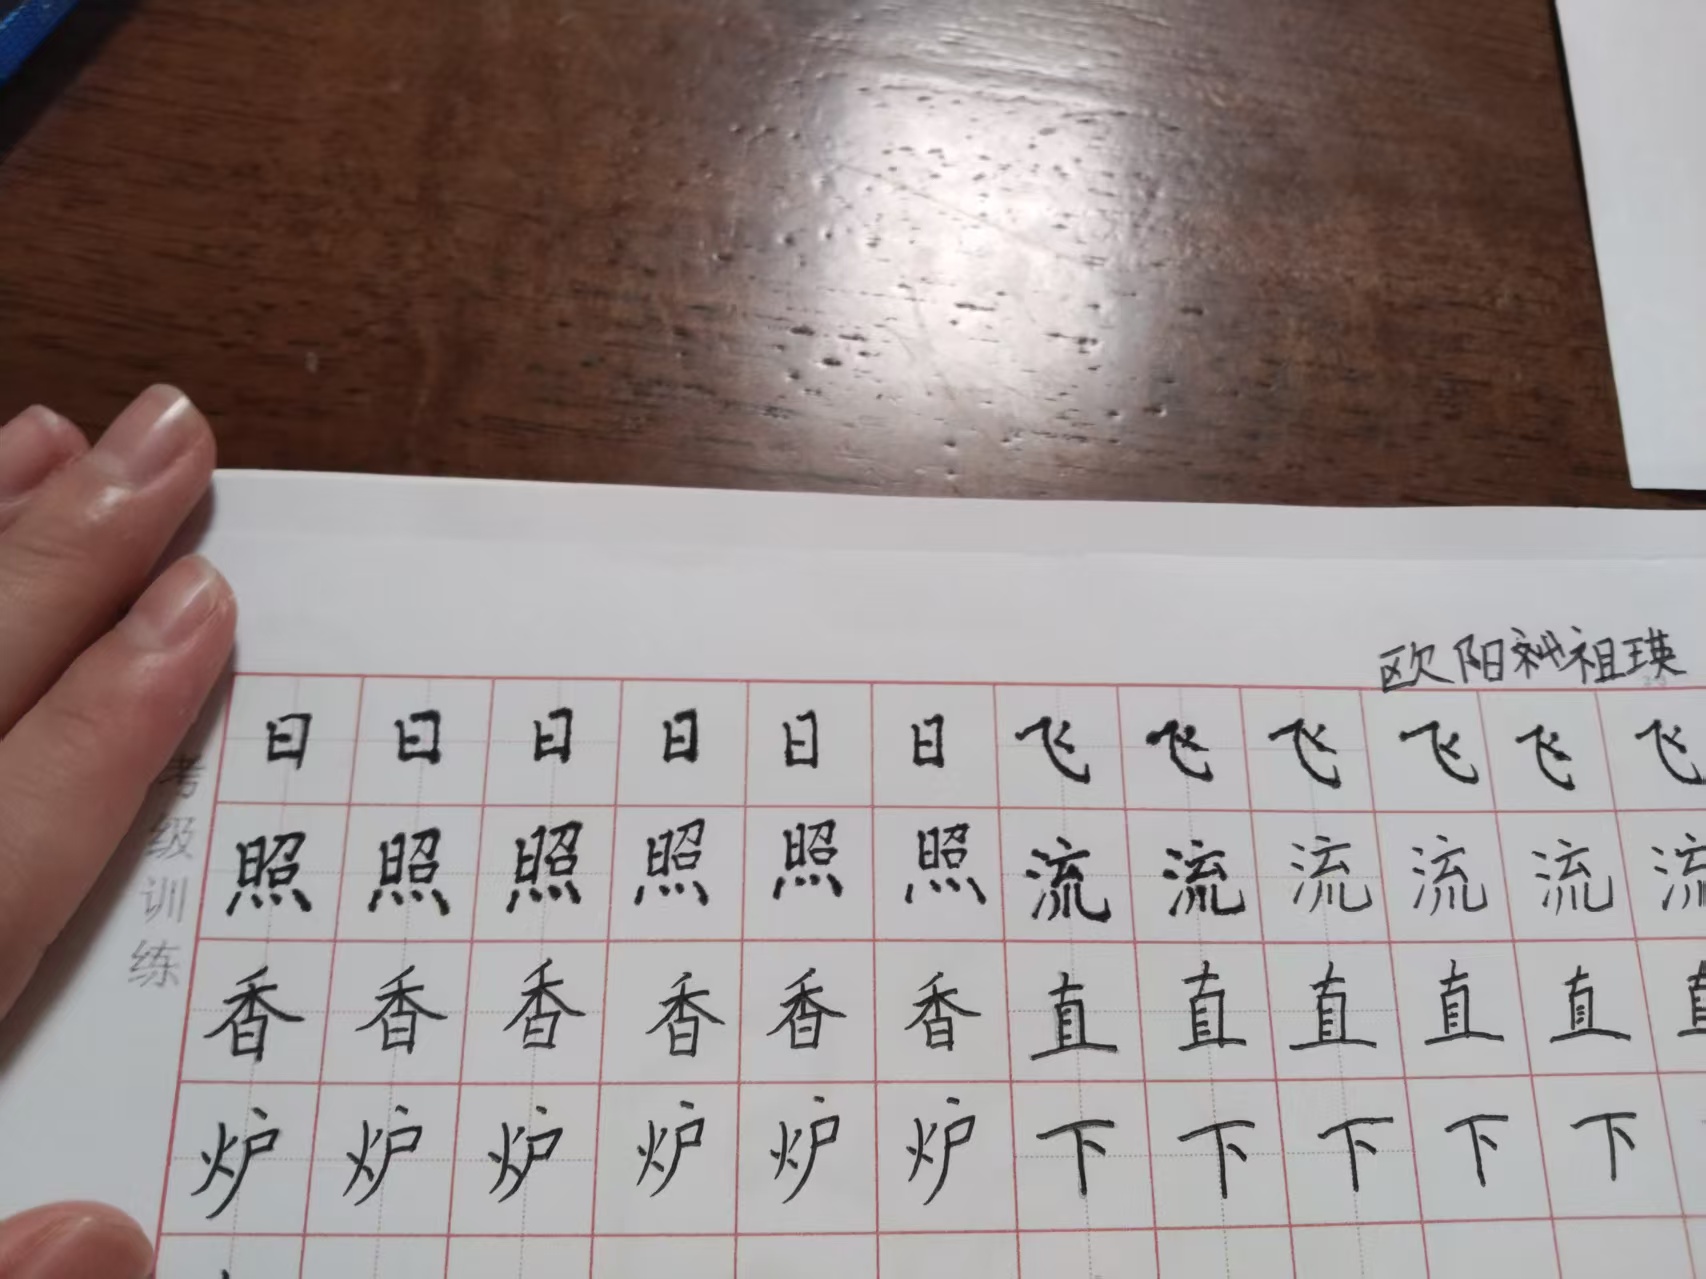 欧阳祖瑛
日 日 日 日 日 日 飞 飞 飞 飞 飞 飞
照 照 照 照 照 照 流 流 流 流 流 流
香 香 香 香 香 香 直 直 直 直 直 直
炉 炉 炉 炉 炉 炉 下 下 下 下 下
考级训练